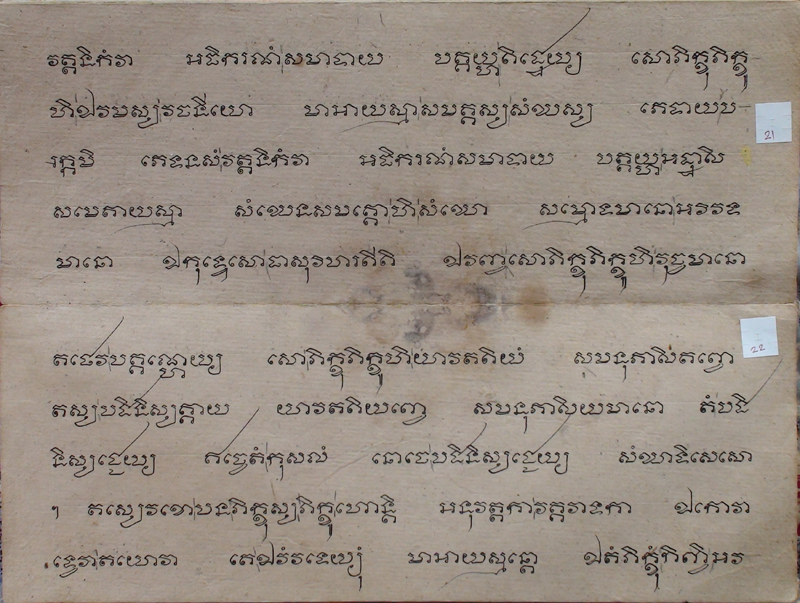 វត្តនិកំវា អធិករណំសមាទាយ បគ្គយ្ហតិដ្ឋេយ្យ សោភិក្ខុភិក្ខុ
ហិឯវមស្សវចនីយោ មាអាយស្មាសមគ្គស្សសំឃស្ស ភេទាយប
21
រក្កមិ ភេទនសំវត្តនិកំវា អធិករណំសមាទាយ បគ្គយ្ហអដ្ឋាសិ
សមេតាយស្មា សំឃេនសមគ្គោហិសំឃោ សម្មោទមានោអវិវទ
មានោ ឯកុទ្ទេសោផាសុវិហារតីតិ ឯវញ្ចសោភិក្ខុភិក្ខុហិវុច្ចមានោ
តថេវបគ្គណ្ហេយ្យ សោភិក្ខុភិក្ខុហិយាវតតិយំ សមនុភាសិតព្វោ
22
តស្សបដិនិស្សគ្គាយ យាវតតិយញ្ចេ សមនុភាសិយមានោ តំបដិ
និស្សជ្ជេយ្យ ឥច្ចេតំកុសលំ នោចេបដិនិស្សជ្ជេយ្យ សំឃាទិសេសោ
ៗ តស្សេវខោបនភិក្ខុស្សភិក្ខូហោន្តិ អនុវត្តកាវគ្គវាទកា ឯកោវា
ទ្វេវាតយោវា តេឯវំវទេយ្យុំ មាអាយស្មន្តោ ឯតំភិក្ខុំកិញ្ចិអវ